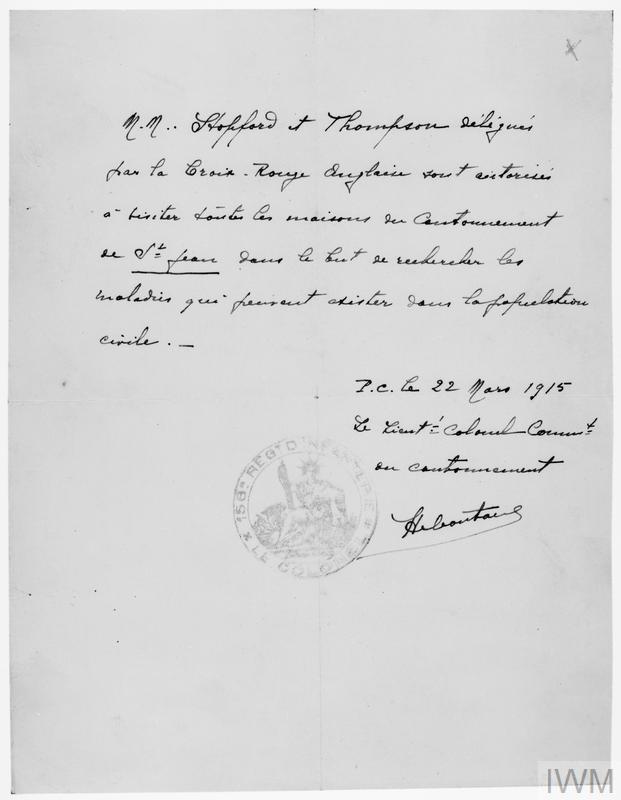 M.M.. Stopford et Thompson délégués
par la Croix-Rouge Anglaise sont autorisés
à visiter toutes les maisons du Cantonnement
de St Jean dans le but de rechercher les
maladies qui peuvent exister dans la population
civile. _
P.C. le 22 Mars 1915
Le Lieutt Colonel Commt
du cantonnement
158e REGT D'INFANTERIE
* LE COLONEL *
IWM